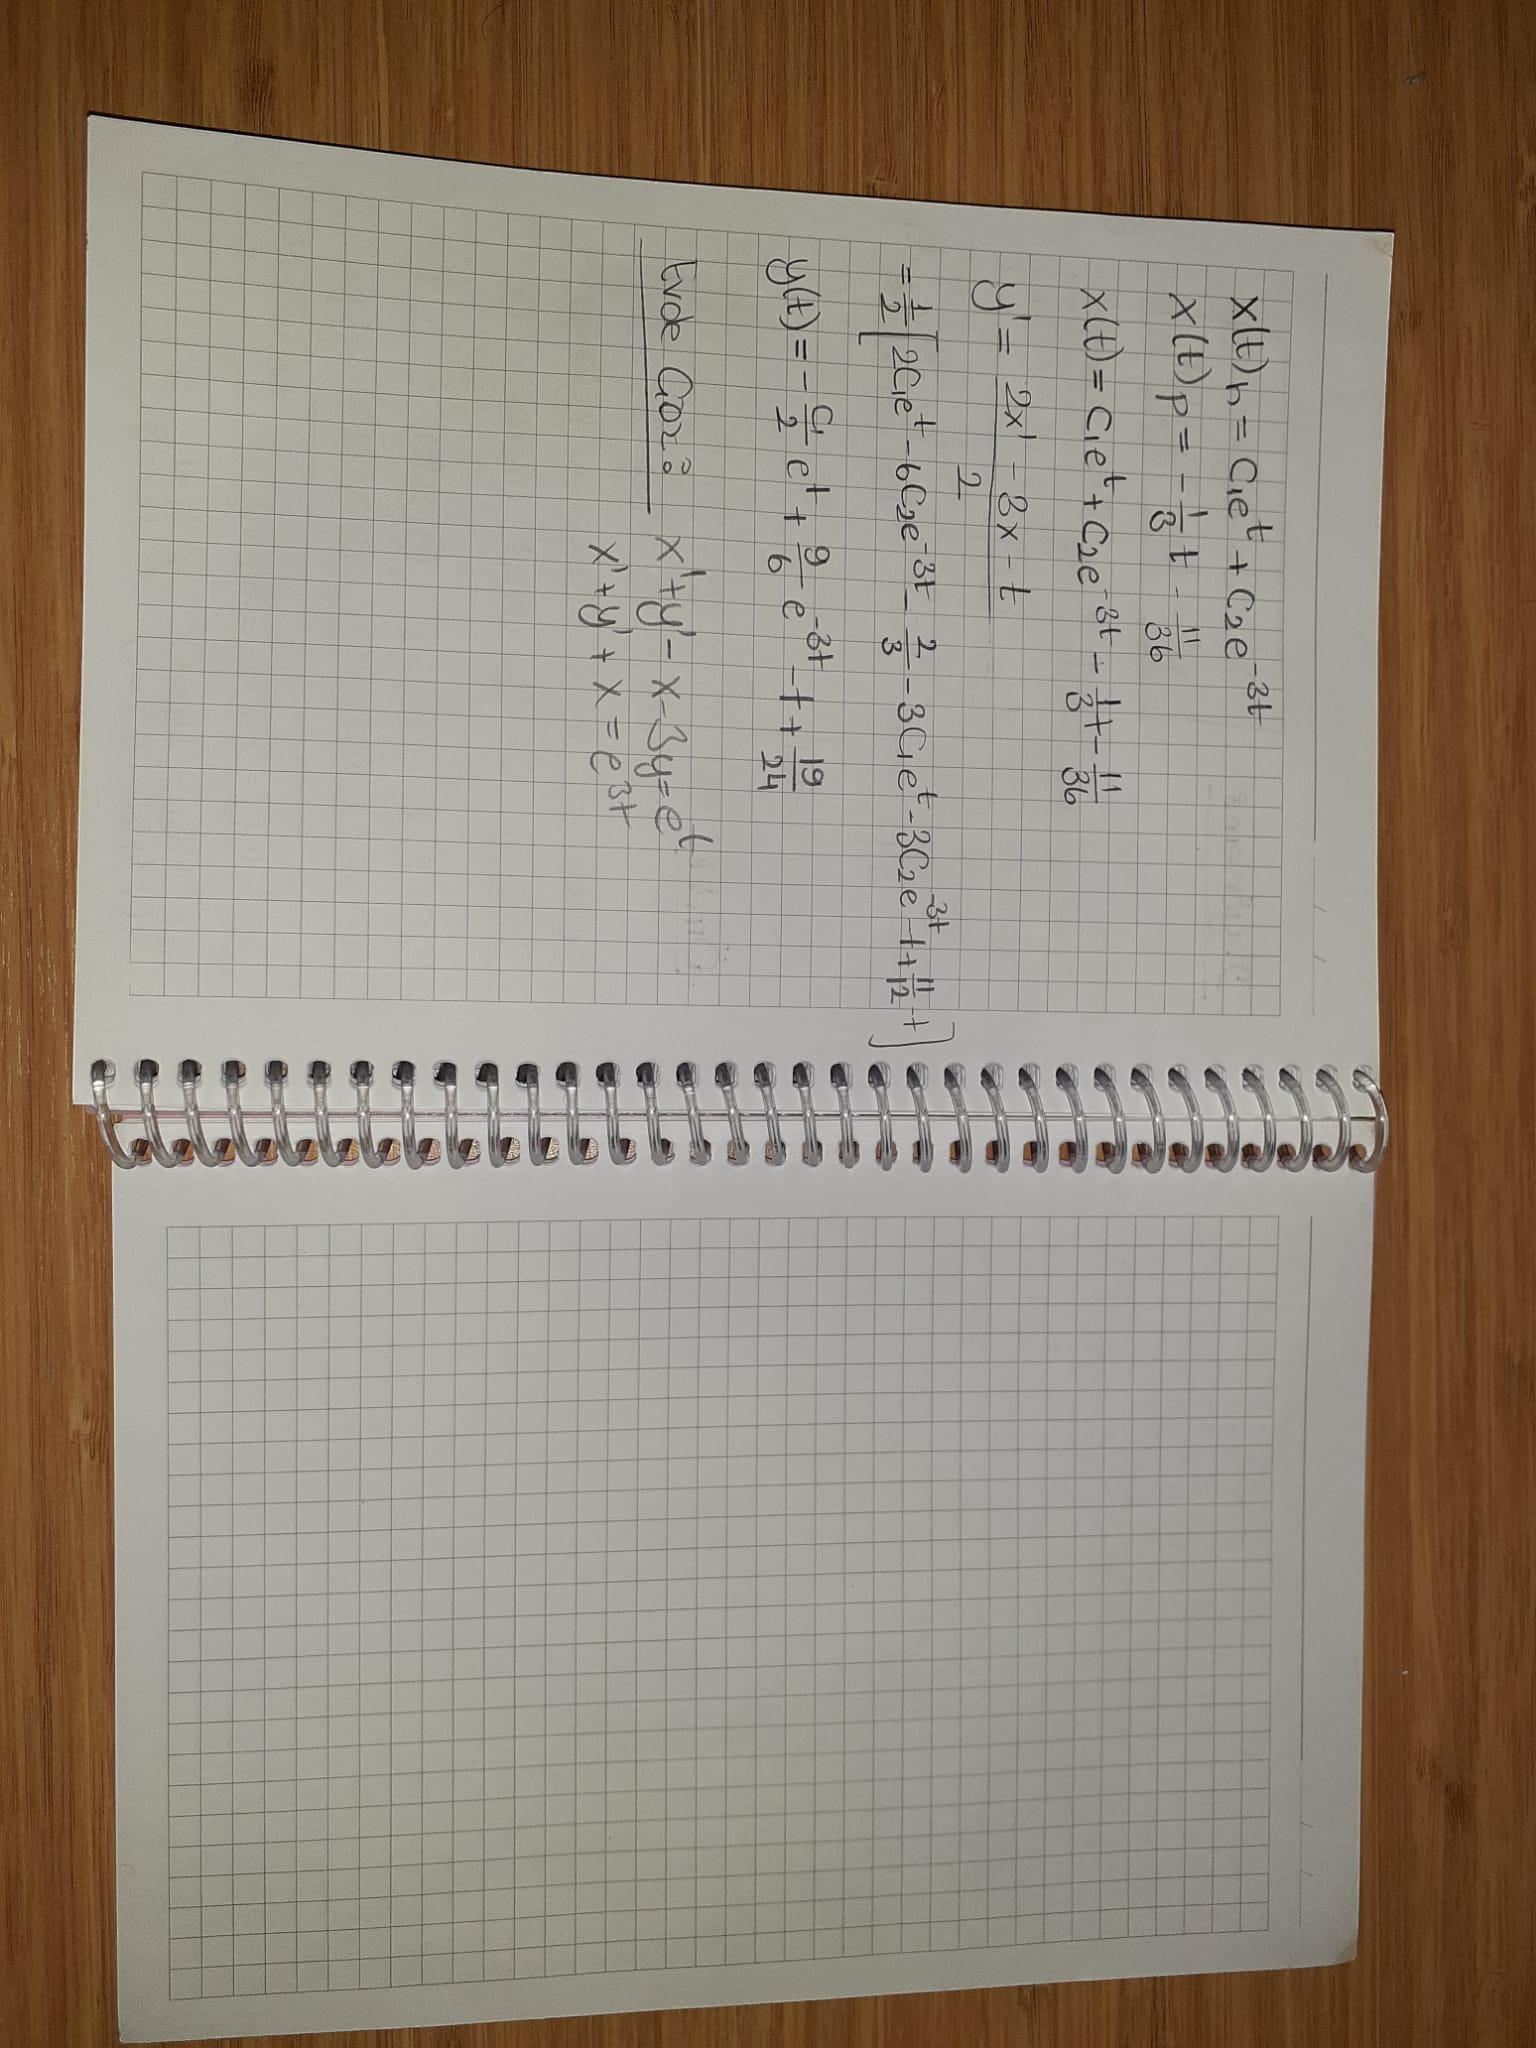 x(t)h = C₁e^t + C₂e^-3t
x(t)p = - 1/3 t - 11/36
x(t) = C₁e^t + C₂e^-3t - 1/3 t - 11/36
y' = (2x' - 3x - t)/2
= 1/2 [2C₁e^t - 6C₂e^-3t - 2/3 - 3C₁e^t - 3C₂e^-3t + t + 11/12 - t]
y(t) = - C₁/2 e^t + 9/6 e^-3t - t + 19/24
Evde Çöz: x' + y' - x - 3y = e^t
x' + y' + x = e^3t